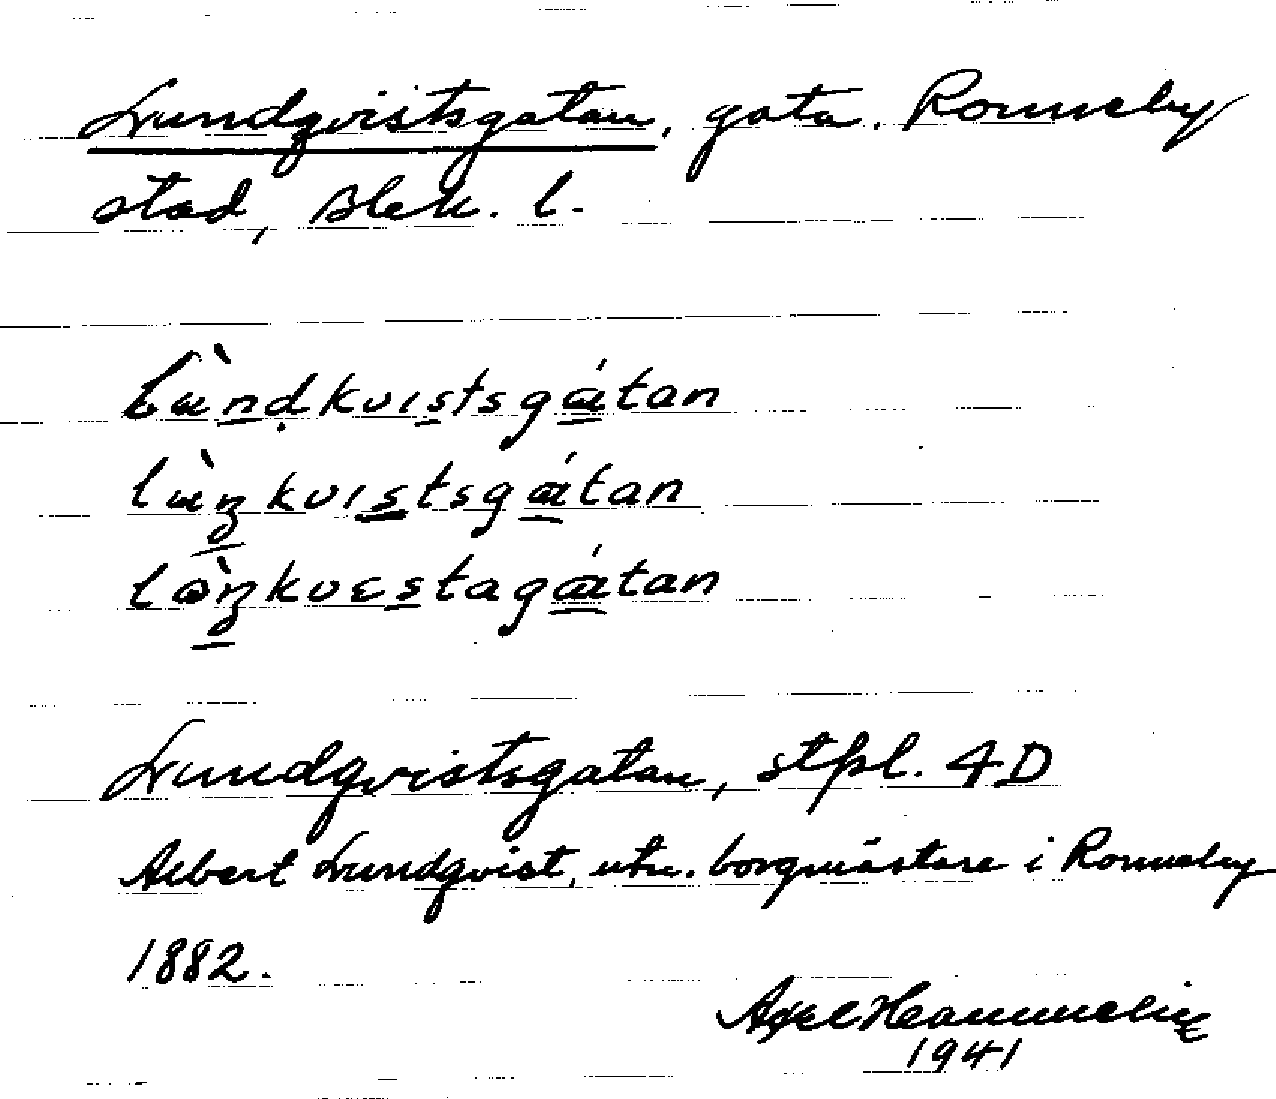 Lundqvistsgatan, gata, Ronneby
stad, Blek. l.
lùndkvıstsgátan
lùnkvıstsgátan
lònkvɛstagátan
Lundqvistsgatan, stpl. 4D
Albert Lundqvist, utn. borgmästare i Ronneby
1882.
Axel Hammelin
1941